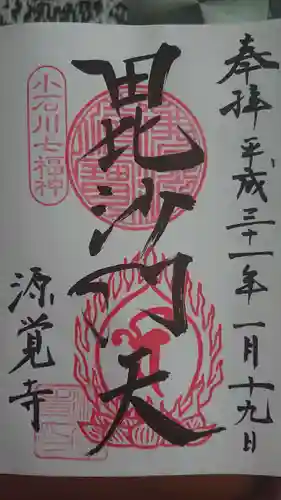 奉拝
平成三十一年一月十九日
小石川七福神
毘沙門天
源覚寺